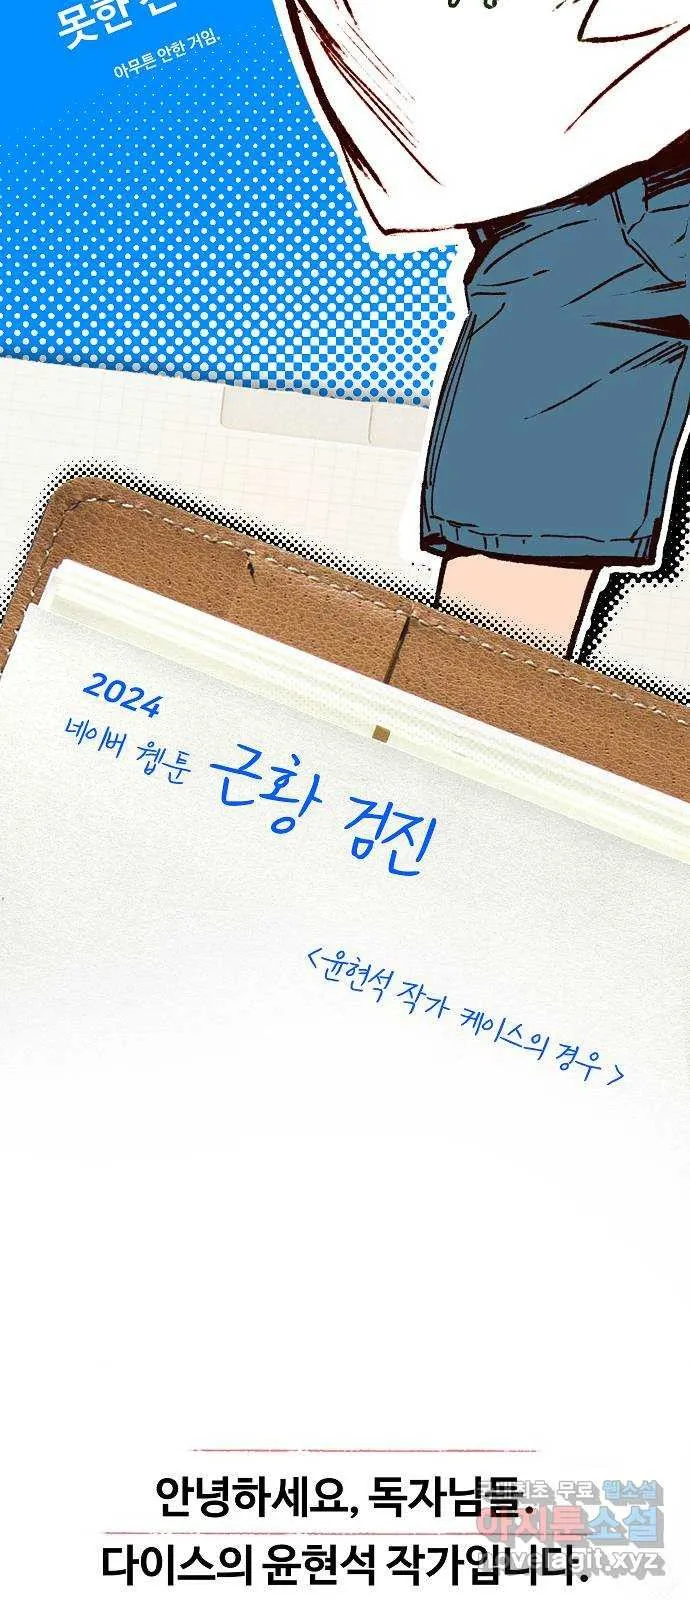 못한
아무튼 안한 거임.
2024
네이버 웹툰 근황 검진
<윤현석 작가 케이스의 경우>
안녕하세요, 독자님들.
다이스의 윤현석 작가입니다.
국내최초 무료 웹소설
아지툰소설
novelagit.xyz